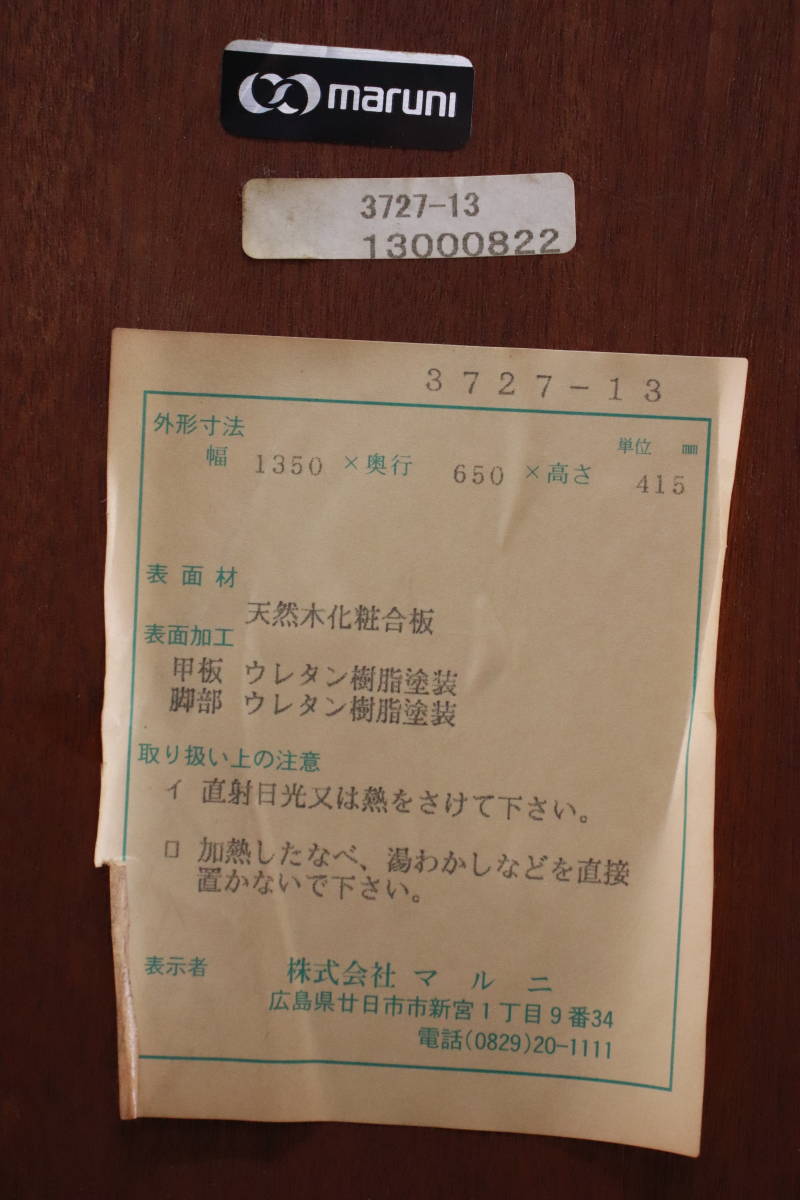 maruni
3727-13
13000822
3727-13
外形寸法
単位 ㎜
幅 1350 ×奥行 650 ×高さ 415
表面材
天然木化粧合板
表面加工
甲板 ウレタン樹脂塗装
脚部 ウレタン樹脂塗装
取り扱い上の注意
イ 直射日光又は熱をさけて下さい。
ロ 加熱したなべ、湯わかしなどを直接
置かないで下さい。
表示者 株式会社 マルニ
広島県廿日市市新宮1丁目9番34
電話(0829)20-1111